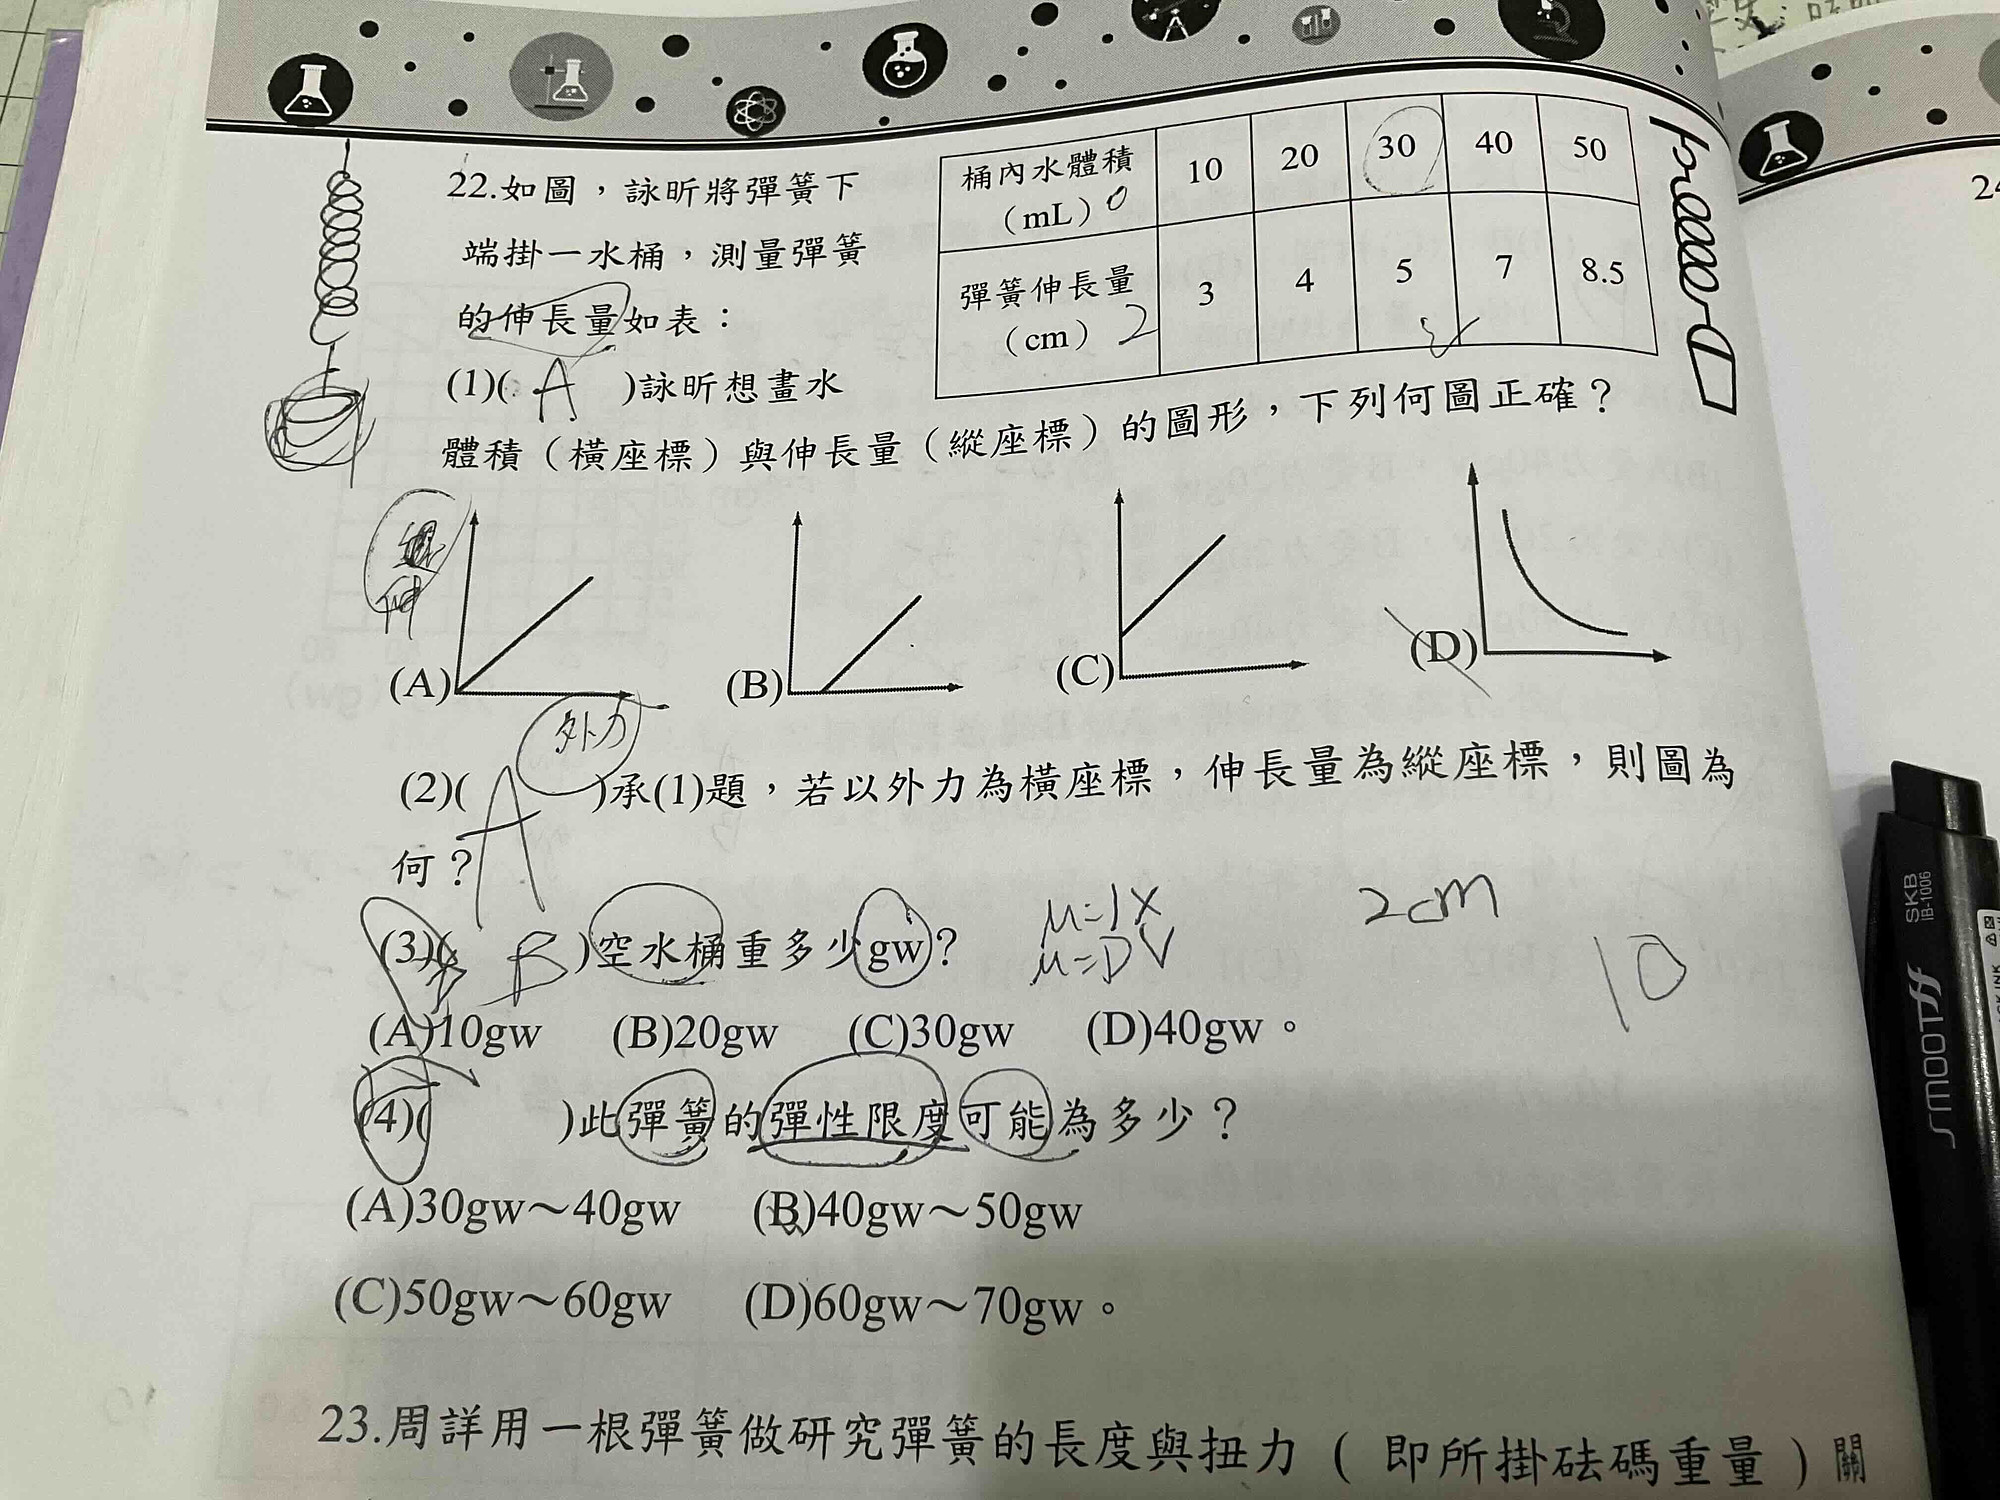 22.如圖，詠昕將彈簧下
端掛一水桶，測量彈簧
的伸長量如表：
桶內水體積 10 20 30 40 50
（mL）0
彈簧伸長量 3 4 5 7 8.5
（cm）2
(1)( A )詠昕想畫水
體積（橫座標）與伸長量（縱座標）的圖形，下列何圖正確？
伸
(A) (B) (C) (D)
外力
(2)( A )承(1)題，若以外力為橫座標，伸長量為縱座標，則圖為
何？
2cm
(3)( B )空水桶重多少gw？
10
(A)10gw (B)20gw (C)30gw (D)40gw。
(4)( )此彈簧的彈性限度可能為多少？
(A)30gw～40gw (B)40gw～50gw
(C)50gw～60gw (D)60gw～70gw。
23.周詳用一根彈簧做研究彈簧的長度與扭力（即所掛砝碼重量）關
SKB
IB-1006
SMOOTH